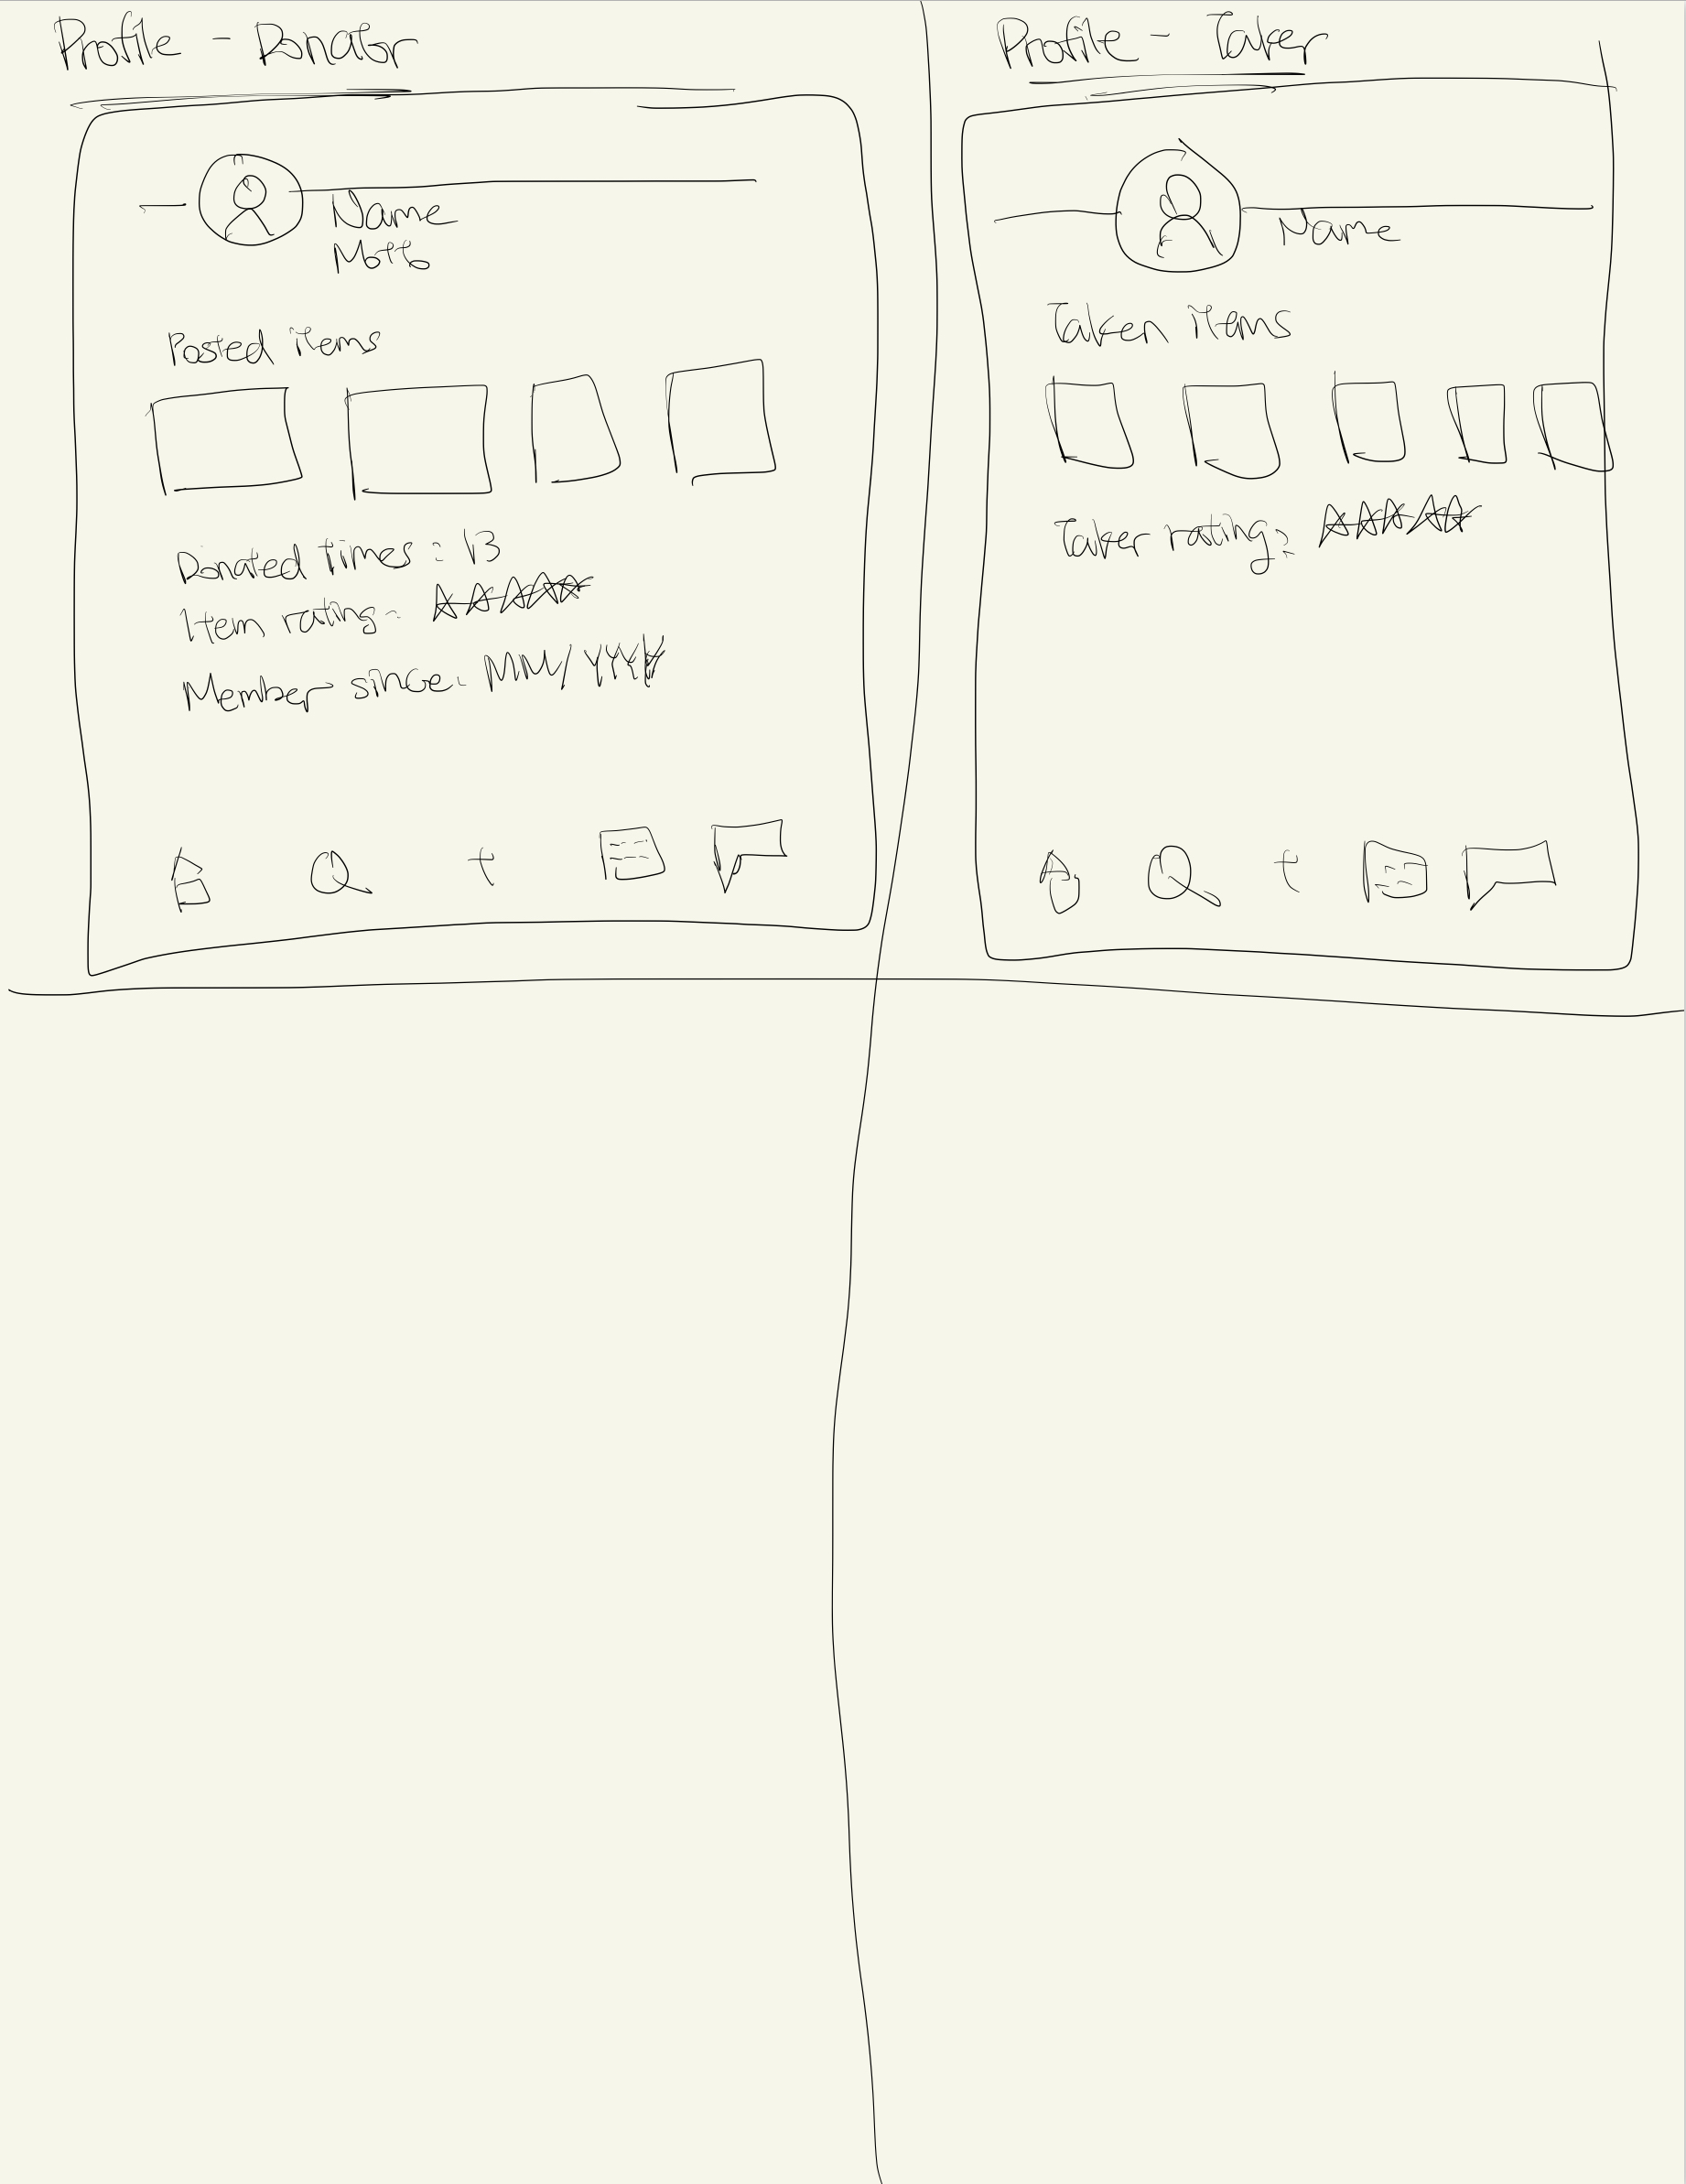 Profile - Donator
Name
Motto
Posted items
Donated times: 13
Item rating:
Member since: MM/YYYY
Profile - Taker
Name
Taken items
Taker rating: